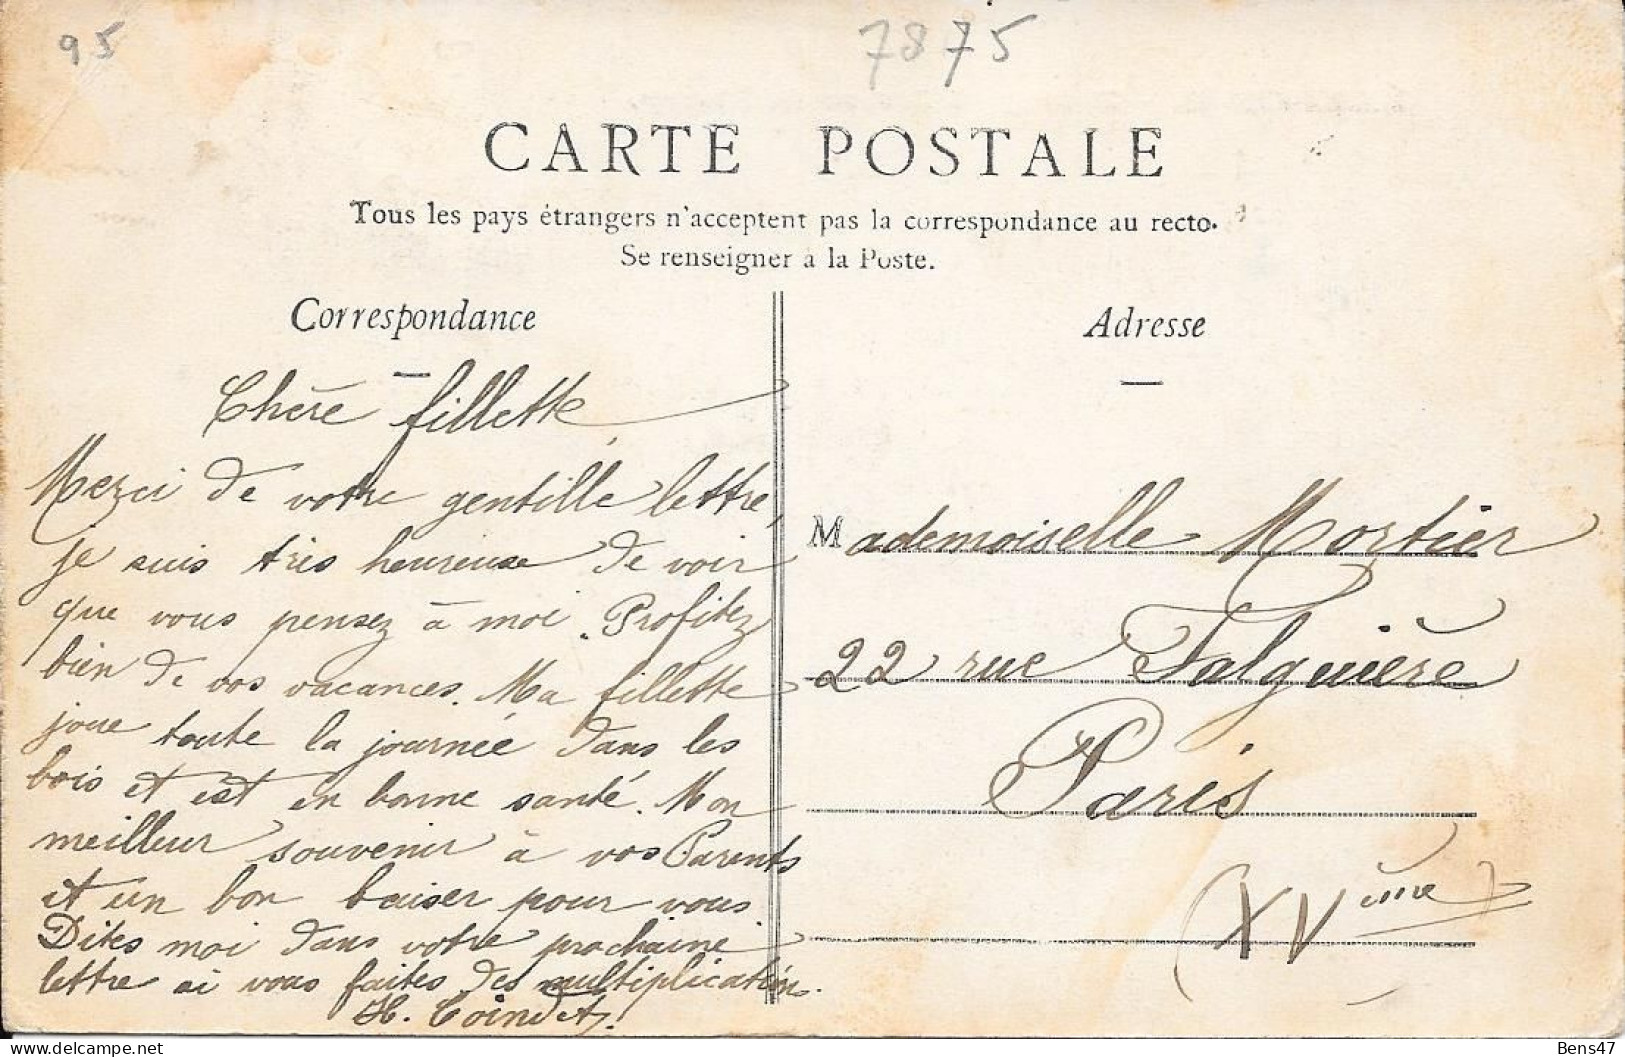 95
7875
CARTE POSTALE
Tous les pays étrangers n'acceptent pas la correspondance au recto.
Se renseigner à la Poste.
Correspondance
Chère fillette,
Merci de votre gentille lettre,
je suis très heureuse de voir
que vous pensez à moi. Profitez
bien de vos vacances. Ma fillette
joue toute la journée dans les
bois et est en bonne santé. Mon
meilleur souvenir à vos Parents
et un bon baiser pour vous
Dites moi dans votre prochaine
lettre si vous faites des multiplications.
H. Coindet
Adresse
Mademoiselle Mortier
22 rue Falguière
Paris
(XVème)
Bens47